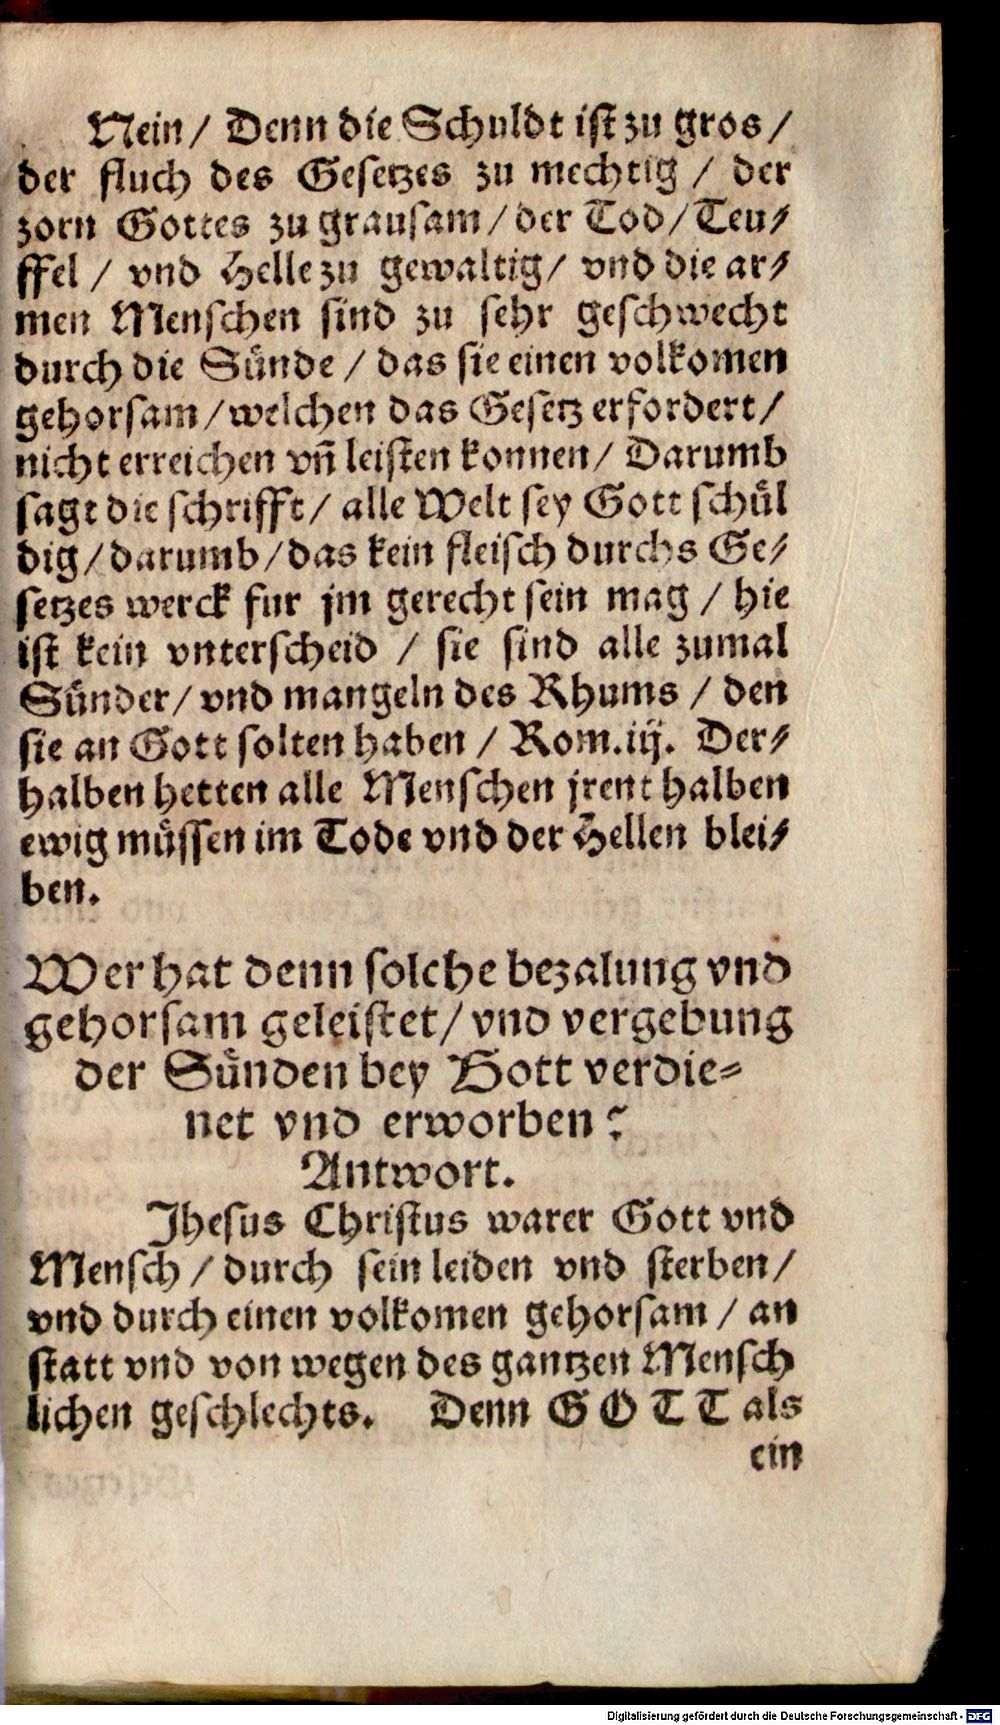 Nein / Denn die Schuldt ist zu gros /
der fluch des Gesetzes zu mechtig / der
zorn Gottes zu grausam / der Tod / Teu⸗
ffel / vnd Helle zu gewaltig / vnd die ar⸗
men Menschen sind zu sehr geschwecht
durch die Sünde / das sie einen volkomen
gehorsam / welchen das Gesetz erfordert /
nicht erreichen vñ leisten konnen / Darumb
sagt die schrifft / alle Welt sey Gott schül
dig / darumb / das kein fleisch durchs Ge⸗
setzes werck fur jm gerecht sein mag / hie
ist kein vnterscheid / sie sind alle zumal
Sünder / vnd mangeln des Rhums / den
sie an Gott solten haben / Rom. iij. Der⸗
halben hetten alle Menschen jrent halben
ewig müssen im Tode vnd der Hellen blei⸗
ben.
Wer hat denn solche bezalung vnd
gehorsam geleistet / vnd vergebung
der Sünden bey Gott verdie⸗
net vnd erworben?
Antwort.
Jhesus Christus warer Gott vnd
Mensch / durch sein leiden vnd sterben /
vnd durch einen volkomen gehorsam / an
statt vnd von wegen des gantzen Mensch
lichen geschlechts. Denn GOTT als
ein
Digitalisierung gefördert durch die Deutsche Forschungsgemeinschaft - DFG